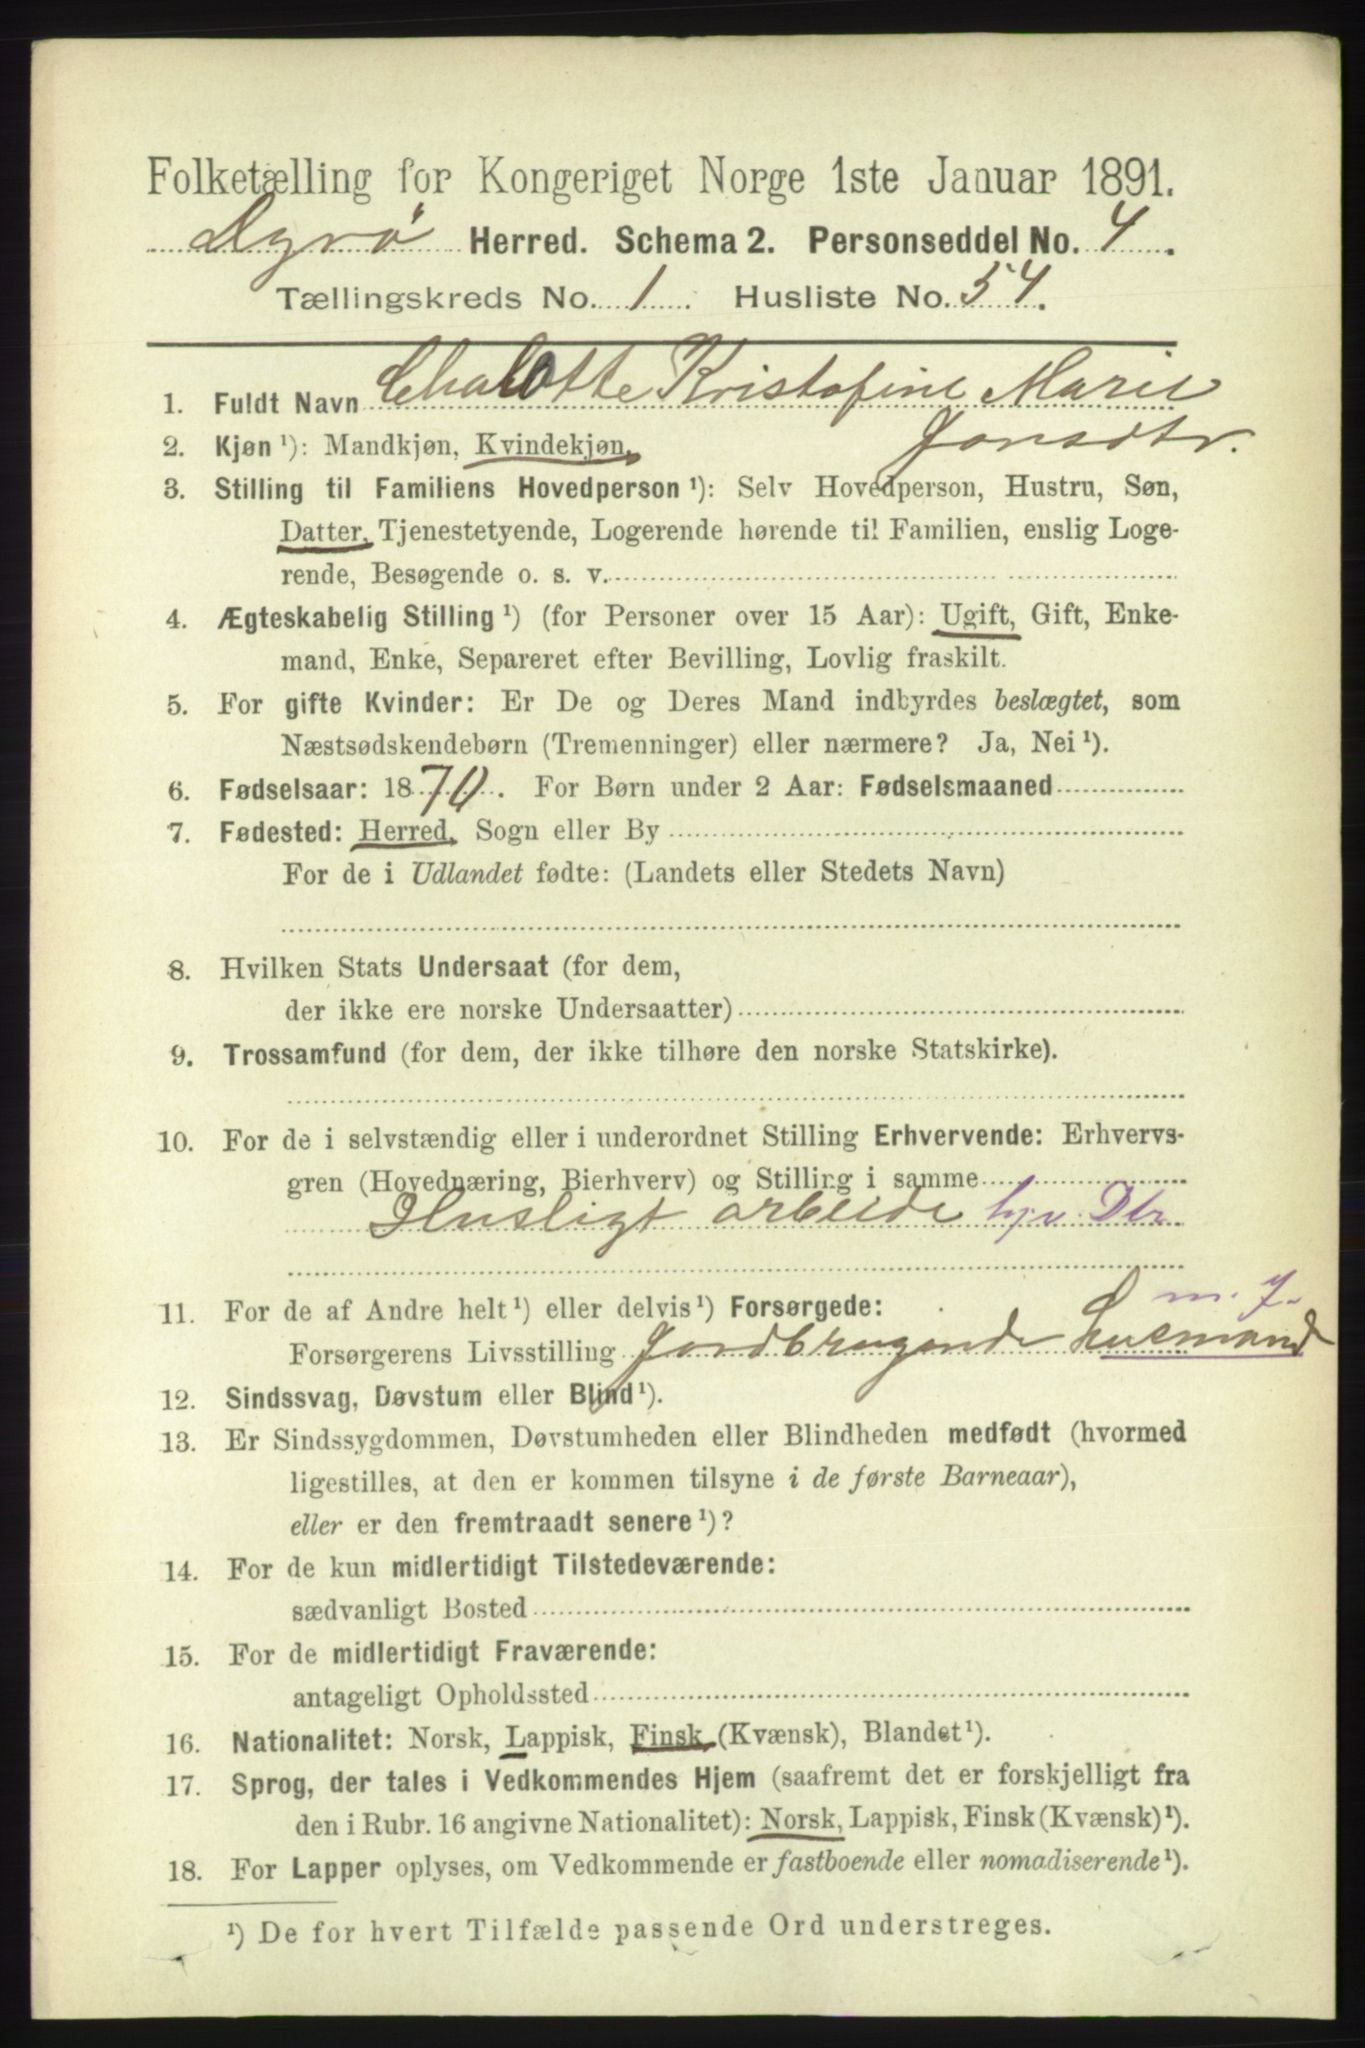 Folketælling for Kongeriget Norge 1ste Januar 1891.
Dyrø Herred. Schema 2. Personseddel No. 4.
Tællingskreds No. 1. Husliste No. 54.
1. Fuldt Navn Chalotte Kristofine Marie
Jonsdtr.
2. Kjøn ¹): Mandkjøn, Kvindekjøn.
3. Stilling til Familiens Hovedperson ¹): Selv Hovedperson, Hustru, Søn,
Datter, Tjenestetyende, Logerende hørende til Familien, enslig Loge-
rende, Besøgende o. s. v.
4. Ægteskabelig Stilling ¹) (for Personer over 15 Aar): Ugift, Gift, Enke-
mand, Enke, Separeret efter Bevilling, Lovlig fraskilt.
5. For gifte Kvinder: Er De og Deres Mand indbyrdes beslægtet, som
Næstsødskendebørn (Tremenninger) eller nærmere? Ja, Nei ¹).
6. Fødselsaar: 1870. For Børn under 2 Aar: Fødselsmaaned
7. Fødested: Herred, Sogn eller By
For de i Udlandet fødte: (Landets eller Stedets Navn)
8. Hvilken Stats Undersaat (for dem,
der ikke ere norske Undersaatter)
9. Trossamfund (for dem, der ikke tilhøre den norske Statskirke).
10. For de i selvstændig eller i underordnet Stilling Erhvervende: Erhvervs-
gren (Hovednæring, Bierhverv) og Stilling i samme
Husligt arbeide hjv. Dtr
11. For de af Andre helt ¹) eller delvis ¹) Forsørgede:
m. J.
Forsørgerens Livsstilling Jordbrugende husmand
12. Sindssvag, Døvstum eller Blind ¹).
13. Er Sindssygdommen, Døvstumheden eller Blindheden medfødt (hvormed
ligestilles, at den er kommen tilsyne i de første Barneaar),
eller er den fremtraadt senere ¹)?
14. For de kun midlertidigt Tilstedeværende:
sædvanligt Bosted
15. For de midlertidigt Fraværende:
antageligt Opholdssted
16. Nationalitet: Norsk, Lappisk, Finsk (Kvænsk), Blandet ¹).
17. Sprog, der tales i Vedkommendes Hjem (saafremt det er forskjelligt fra
den i Rubr. 16 angivne Nationalitet): Norsk, Lappisk, Finsk (Kvænsk) ¹).
18. For Lapper oplyses, om Vedkommende er fastboende eller nomadiserende ¹).
¹) De for hvert Tilfælde passende Ord understreges.